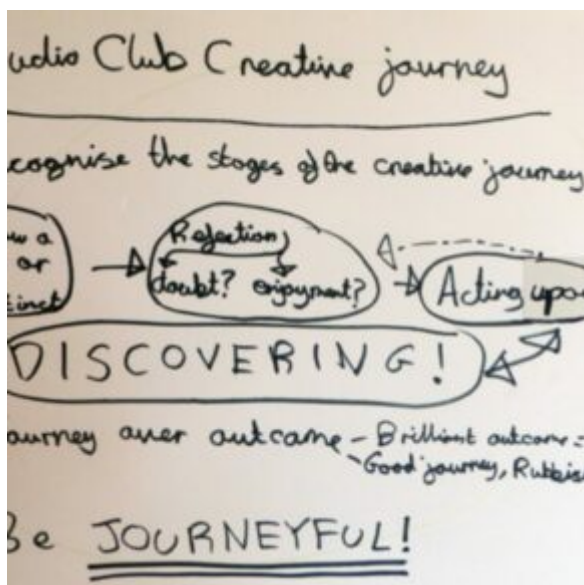 udio Club Creative journey
cognise the stages of the creative journey
w a
or
tinct
Reflection
doubt? enjoyment?
Acting upon
DISCOVERING!
ourney over outcome - Brilliant outcome =
- Good journey, Rubbis
Be JOURNEYFUL!